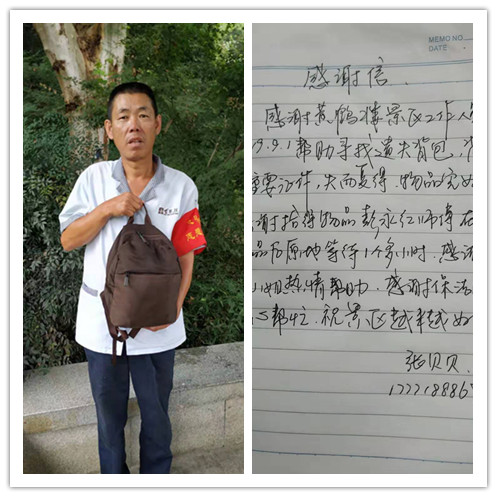 MEMO NO.
DATE
感谢信.
感谢黄鹤楼景区工作人
9.9.1帮助寻找遗失背包,
重要证件,失而复得,物品完好
谢拾得物品彭永红师傅在
品后原地等待1个多小时.感谢
小姐热情帮助.感谢保洁
帮忙.祝景区越来越好
张贝贝.